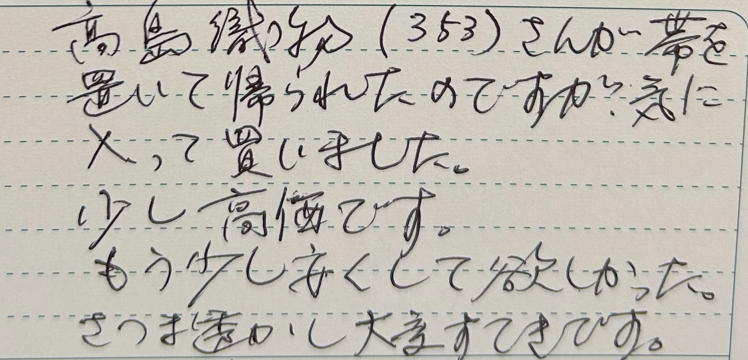 高島織物(353)さんが帯を
置いて帰られたのですが、気に
入って買いました。
少し高価です。
もう少し安くして欲しかった。
さつま透かし大変すてきです。